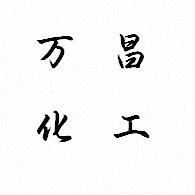 万昌
化工